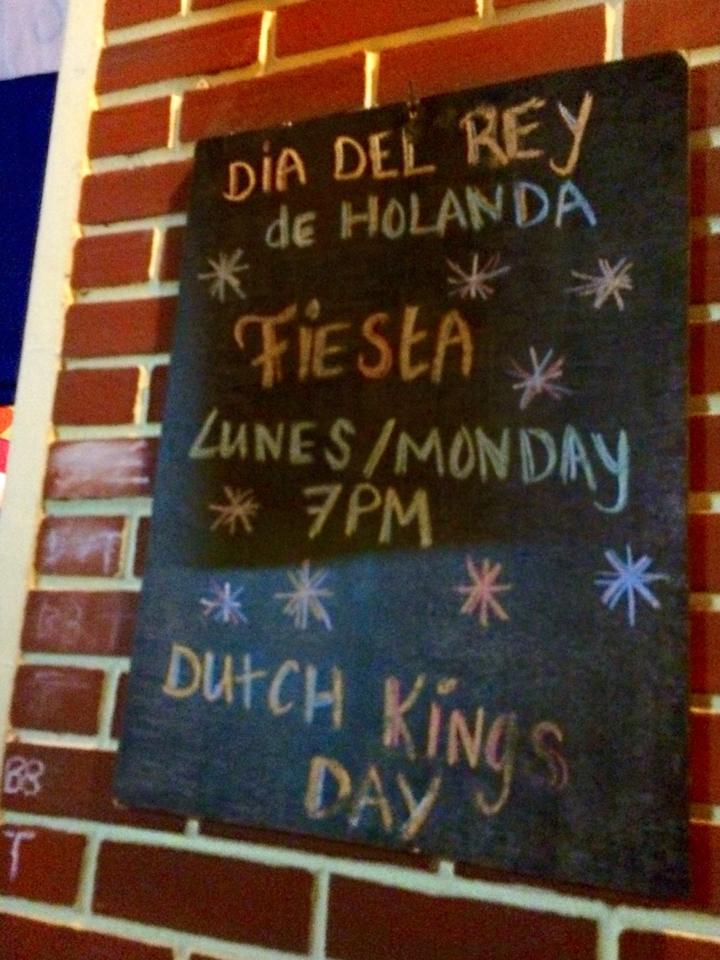 DiA DEL REY
de HOLANDA
FiESTA
LUNES/MONDAY
7PM
DUTCH KiNgS
DAY
BB
T